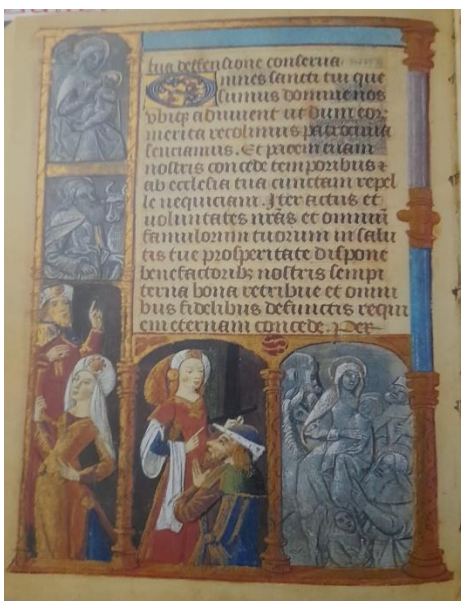 tua deffensione conserua
Omnes sancti tui que
sumus domine nos
vbiqʒ adiuuent ut dum eor
merita recolimus patrocinia
senciamus. Et pacem tuam
nostris concede temporibus ⁊
ab ecclesia tua cunctam repel
le nequiciam. Iter actus et
uoluntates nr̃as et omniũ
famulorum tuorum in salu
tis tue prosperitate dispone
benefactoribꝰ nostris sempi
terna bona retribue et omni
bus fidelibus defunctis requi
em eternam concede. Per